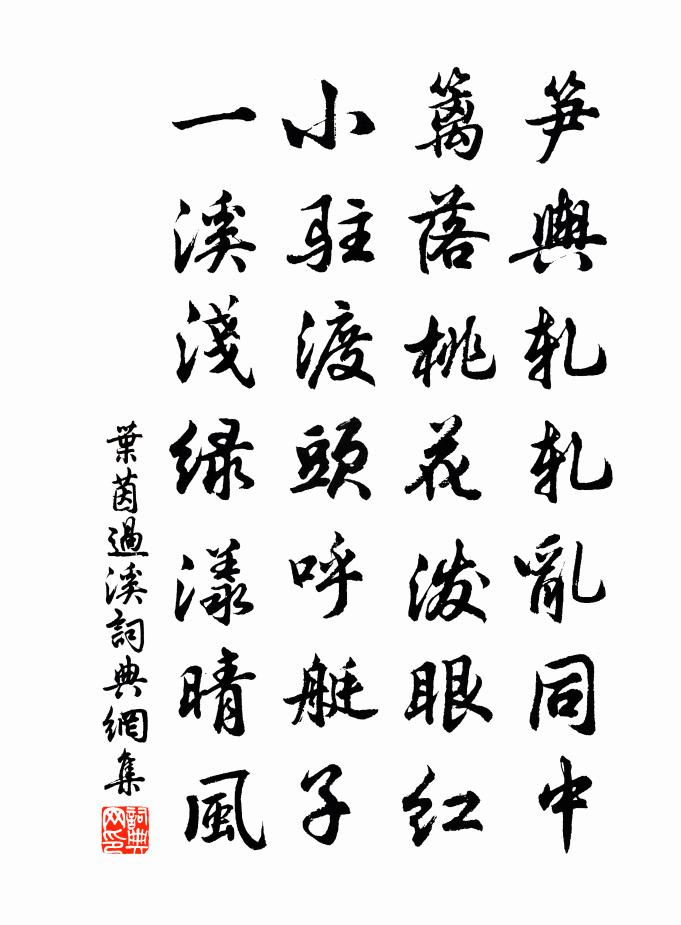 笋輿軋軋亂同中
籬落桃花潑眼紅
小駐渡頭呼艇子
一溪淺緑漾晴風
葉茵過溪詞典網集
詞典网印